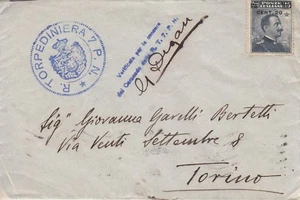 R. TORPEDINIERA 7. P. N.
Verificato per la censura
POSTE ITALIANE
CENT. 20
Sigª Giovanna Garelli Bertetti
Via Venti Settembre 8
Torino